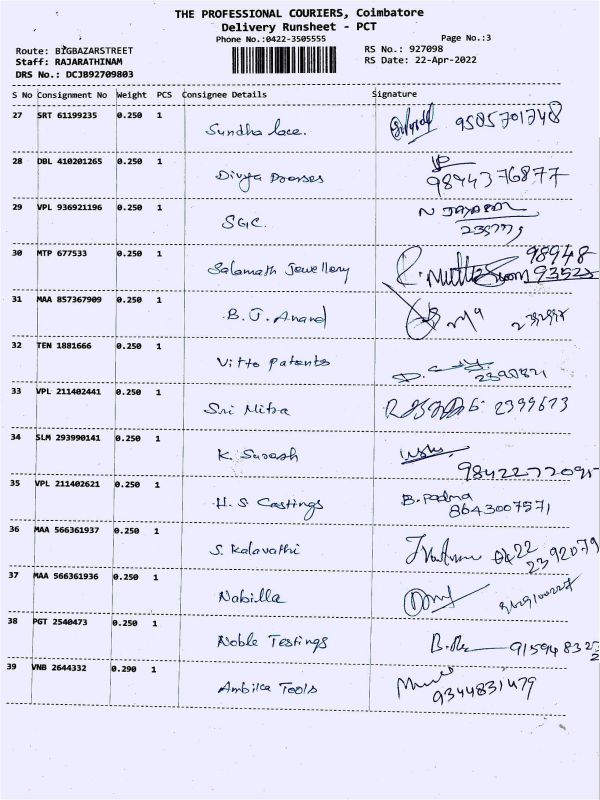 THE PROFESSIONAL COURIERS, Coimbatore
Delivery Runsheet - PCT
Phone No.:0422-3505555 Page No.:3
Route: BIGBAZARSTREET RS No.: 927098
Staff: RAJARATHINAM RS Date: 22-Apr-2022
DRS No.: DCJB92709803
S No Consignment No Weight PCS Consignee Details Signature
27 SRT 61199235 0.250 1 Sundha lace. 9585701748
28 DBL 410201265 0.250 1 Divya Dresses
9894376877
29 VPL 936921196 0.250 1 SGC. N JAYARAM
30 MTP 677533 0.250 1 Salamath Jewellery 98948
93525
31 MAA 857367909 0.250 1 B. J. Anand
32 TEN 1881666 0.250 1 Vitto Patents
33 VPL 211402441 0.250 1 Sri Mitra 2399673
34 SLM 293990141 0.250 1 K. Suresh
9842277209
35 VPL 211402621 0.250 1 H. S Castings B. Padma
8643007571
36 MAA 566361937 0.250 1 S. Kalavathi 0422
2392079
37 MAA 566361936 0.250 1 Nabilla
38 PGT 2540473 0.250 1 Noble Testings
39 VNB 2644332 0.290 1 Ambika Tools
9344831479